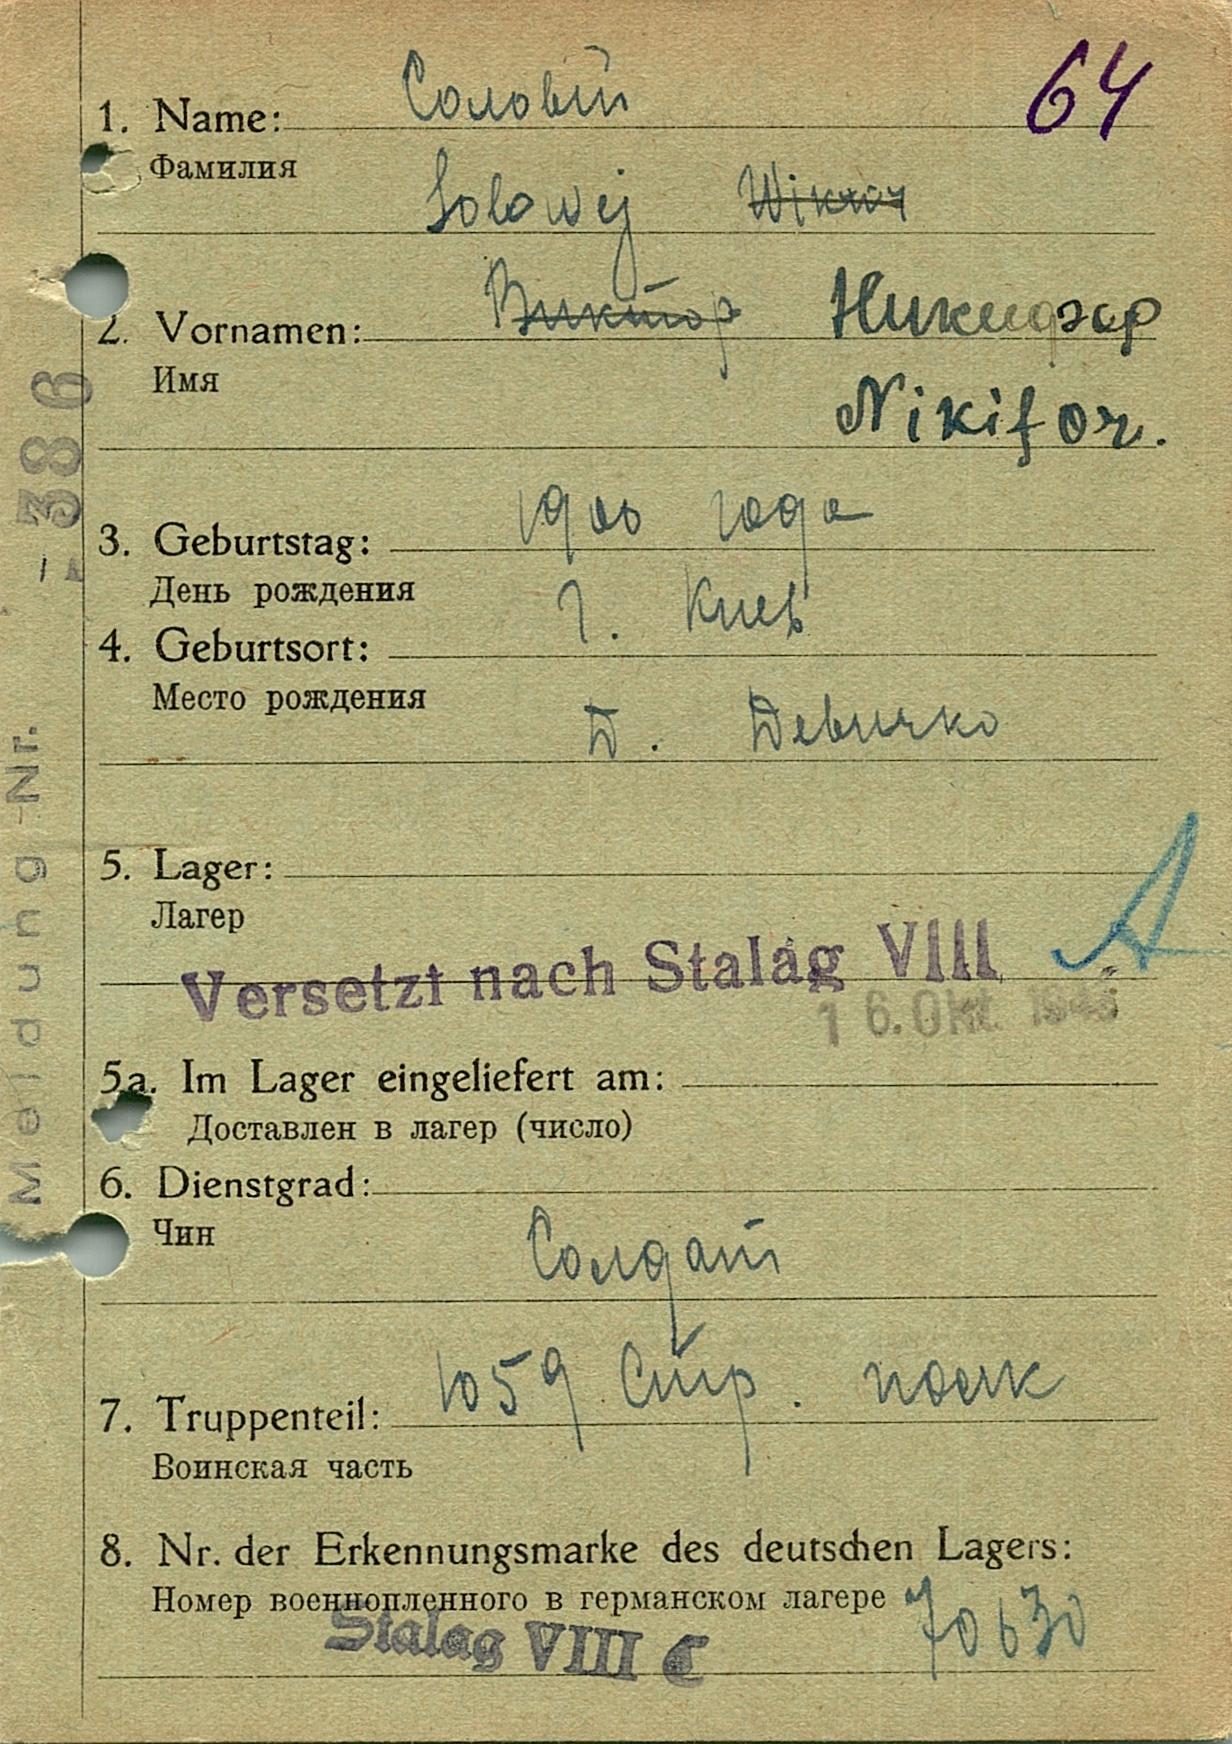 64
1. Name: Соловій
Фамилия
Solowej Wiktor
2. Vornamen: Виктор Никифор
Имя
Nikifor.
3. Geburtstag: 1900 года
День рождения
4. Geburtsort: г. Киев
Место рождения
Д. Девичко
5. Lager:
Лагер
Versetzt nach Stalag VIII A
16. Okt.
5a. Im Lager eingeliefert am:
Доставлен в лагер (число)
6. Dienstgrad:
Чин
Солдат
7. Truppenteil: 1059 Стр. полк
Воинская часть
8. Nr. der Erkennungsmarke des deutschen Lagers:
Номер военнопленного в германском лагере 70630
Stalag VIII C
Meldung-Nr. -386